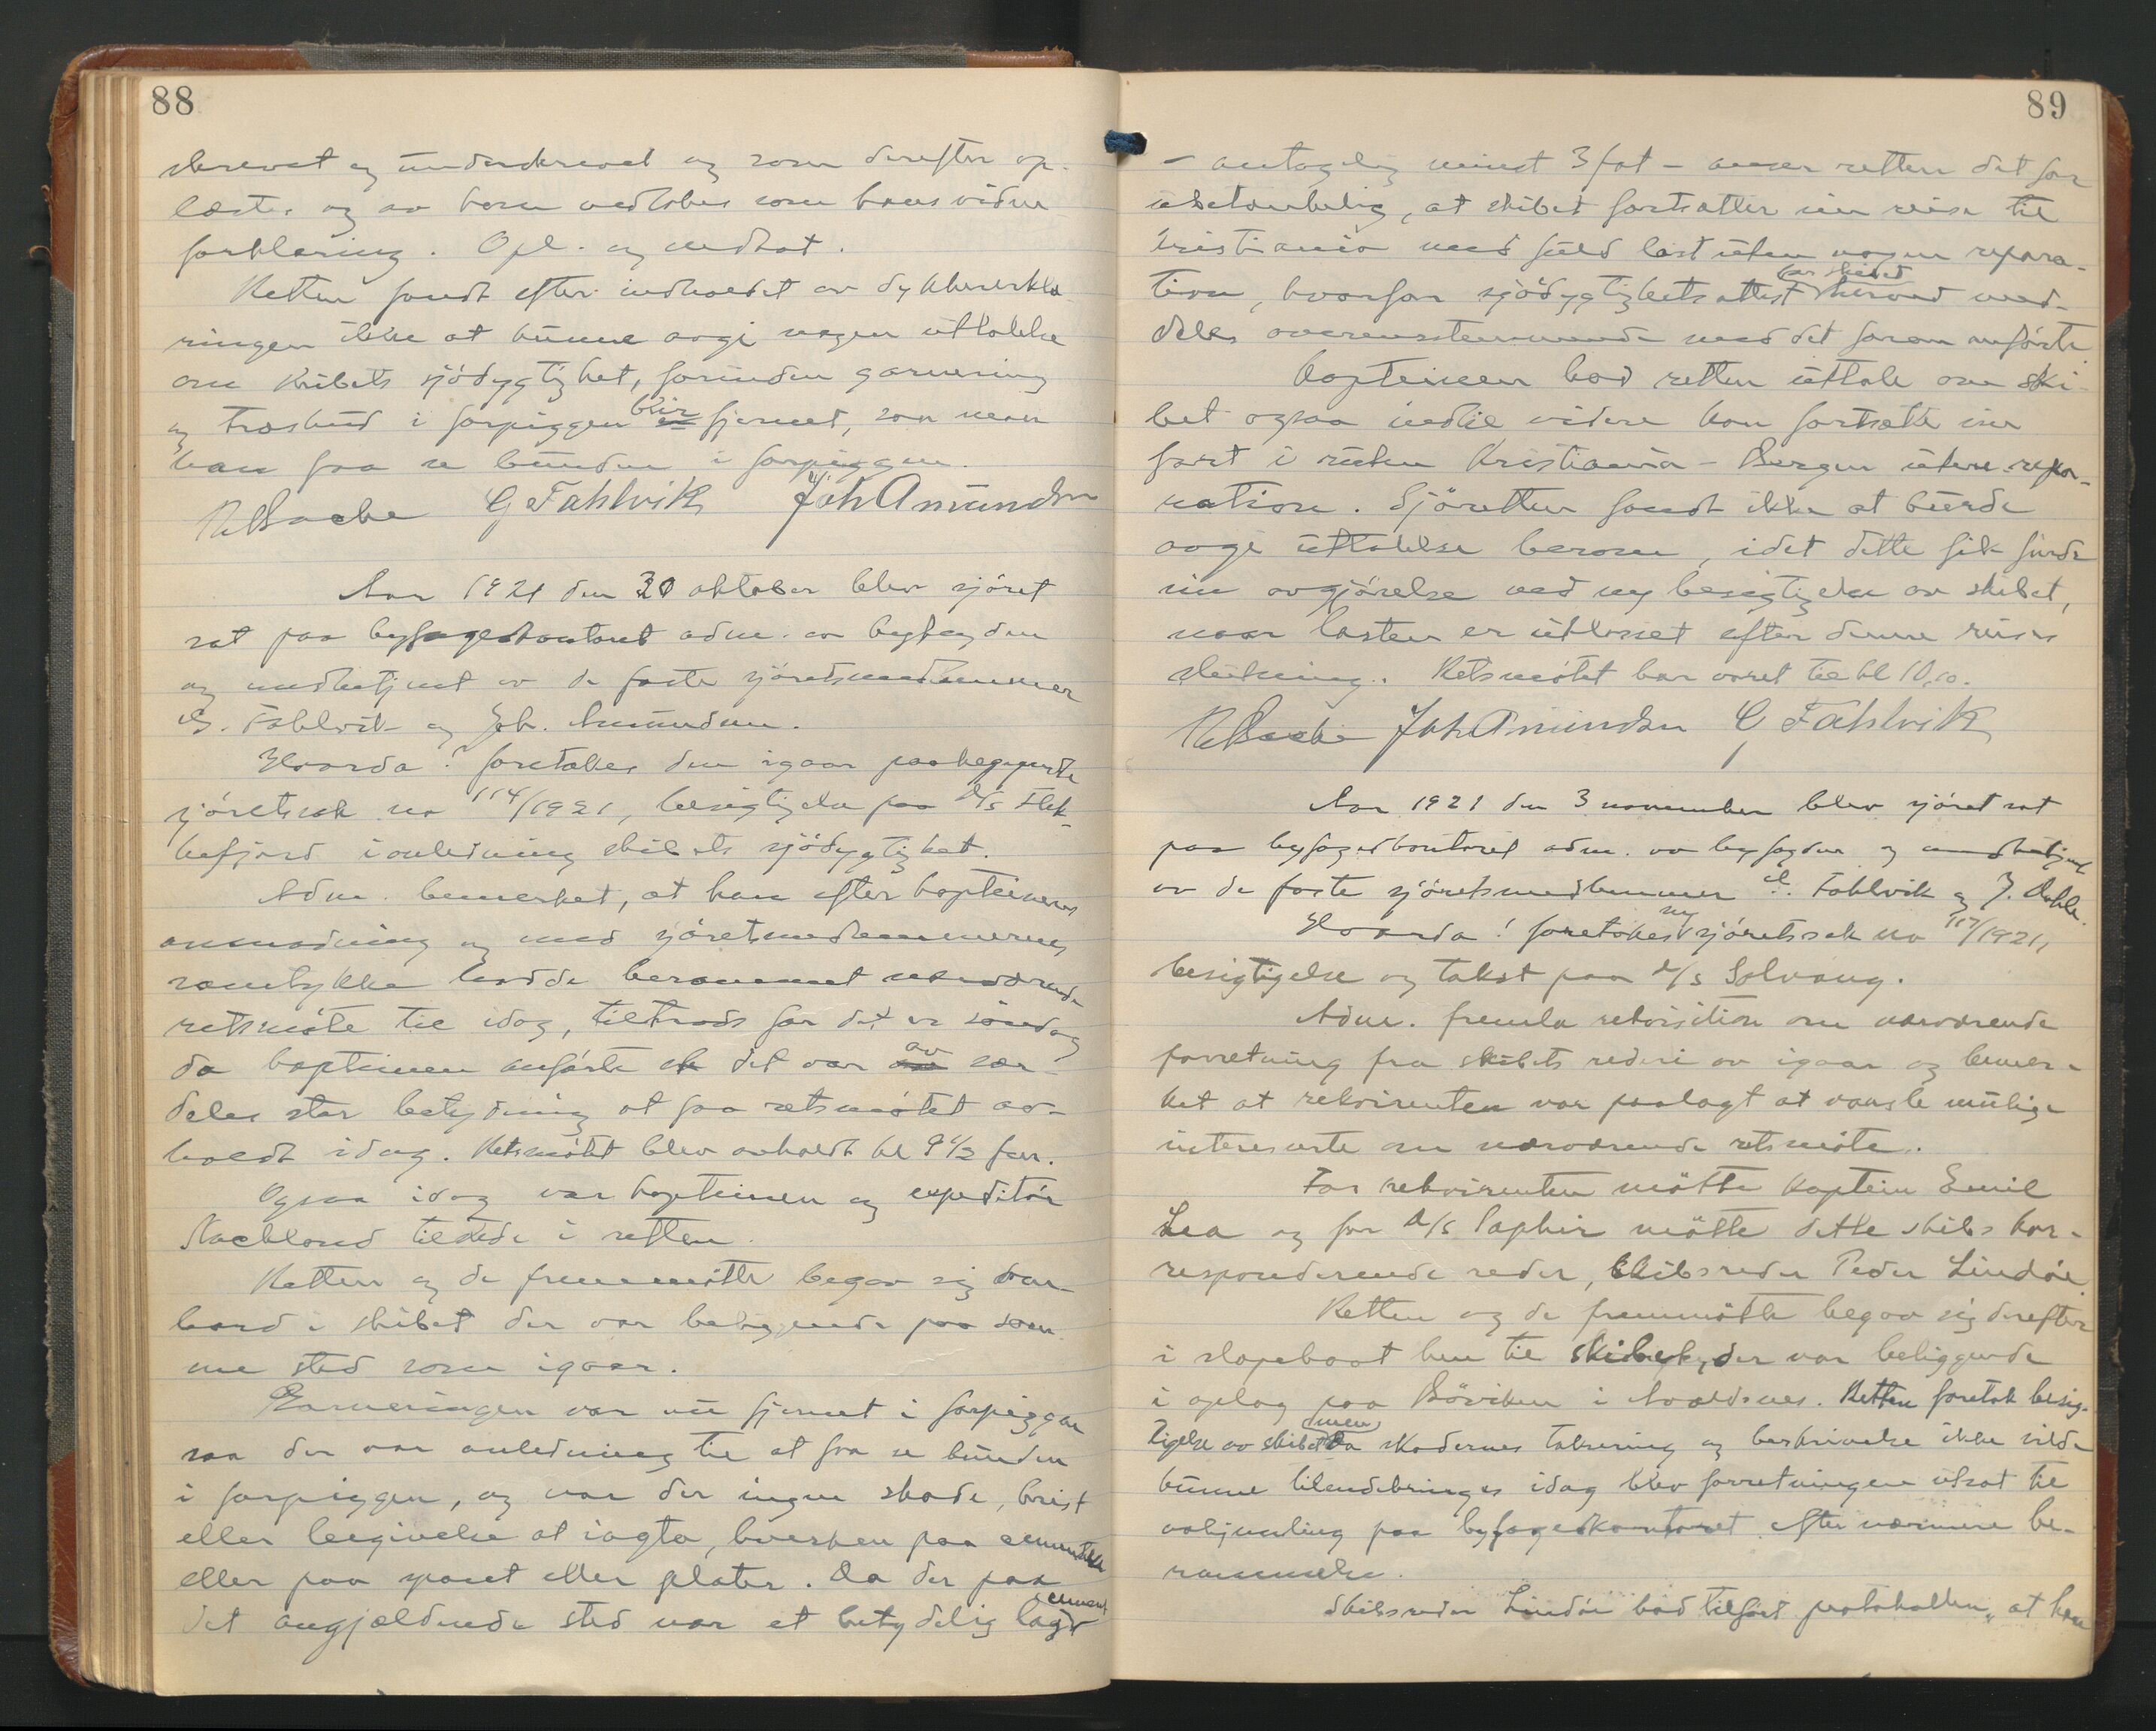 88
skrevet og underskrevet og som derefter op-
læstes og av ham vedtokes som hans vidne
forklaring. Opl. og vedtat.
Retten fandt efter indholdet av dykkererklæ-
ringen ikke at kunne avgi nogen uttalelse
om skibets sjödygtighet, forinden garnering
og træshud i forpiggen blir fjernet, saa man
kan faa se bunden i forpiggen.
G Fahlvik Joh Amundsen
Aar 1921 den 30 oktober blev sjöret
sat paa byfogedkontoret adm. av byfogden
og medbetjent av de faste sjöretsmedlemmer
G. Fahlvik og Joh. Amundsen.
Hvorda! foretokes den igaar paabegyndte
sjöretssak no 114/1921, besigtigelse paa D/S Flek-
kefjord i anledning skibets sjödygtighet.
Adm. bemerket, at han efter kapteinens
anmodning og med sjöretsmedlemmernes
samtykke hadde berammet nærværende
retsmöte til idag, tiltrods for det er söndag
da kapteinen anförte at det var av sær-
deles stor betydning at faa retsmötet av-
holdt idag. Retsmötet blev avholdt kl 9 1/2 fm.
Ogsaa idag var kapteinen og expeditör
Stackland tilstede i retten.
Retten og de fremmötte begav sig om-
bord i skibet der var beliggende paa sam-
me sted som igaar.
Garneringen var nu fjernet i forpiggen
saa der var anledning til at faa se bunden
i forpiggen, og var der ingen skade, brist
eller beigivelse at iagta, hverken paa cementen
eller paa spant eller plater. Da der paa
det angjældende sted var et betydelig lag cement
89
- antagelig mindst 3 fot - anser retten det for
ubetænkelig, at skibet fortsætter sin reise til
Kristiania med fuld last uten nogen repara-
tion, hvorfor sjödygtighetsattest for skibet herved med-
deles overensstemmende med det foran anförte.
Kapteinen bad retten uttale om ski-
bet ogsaa indtil videre kan fortsætte sin
fart i ruten Kristiania - Bergen uten repa-
ration. Sjöretten fandt ikke at burde
avgi uttalelse herom, idet dette fik finde
sin avgjörelse ved ny besigtigelse av skibet,
naar lasten er utlosset efter denne reises
slutning. Retsmötet har varet til kl 10,10.
Joh Amundsen G Fahlvik
Aar 1921 den 3 november blev sjöret sat
paa byfogedkontoret adm. av byfogden og medbetjent
av de faste sjöretsmedlemmer G. Fahlvik og J. Dahle.
Hvorda! foretokes ny sjöretssak no 117/1921,
besigtigelse og takst paa D/S Solvang.
Adm. fremla rekvisition om nærværende
forretning fra skibets rederi av igaar og bemer-
ket at rekvirenten var paalagt at varsle mulige
interesserte om nærværende retsmöte.
For rekvirenten mötte kaptein Emil
Lea og for D/S Saphir mötte dette skibs kor-
responderende reder, Skibsreder Peder Lindöe.
Retten og de fremmötte begav sig derefter
i slopebaat hen til skibet, der var beliggende
i oplag paa Böviken i Avaldsnes. Retten foretok besig-
tigelse av skibet men da skadernes taksering og beskrivelse ikke vilde
kunne tilendebringes idag blev forretningen utsat til
avhjemling paa byfogedkontoret efter nærmere be-
rammelse.
Skibsreder Lindöe bad tilfört protokollen "at han